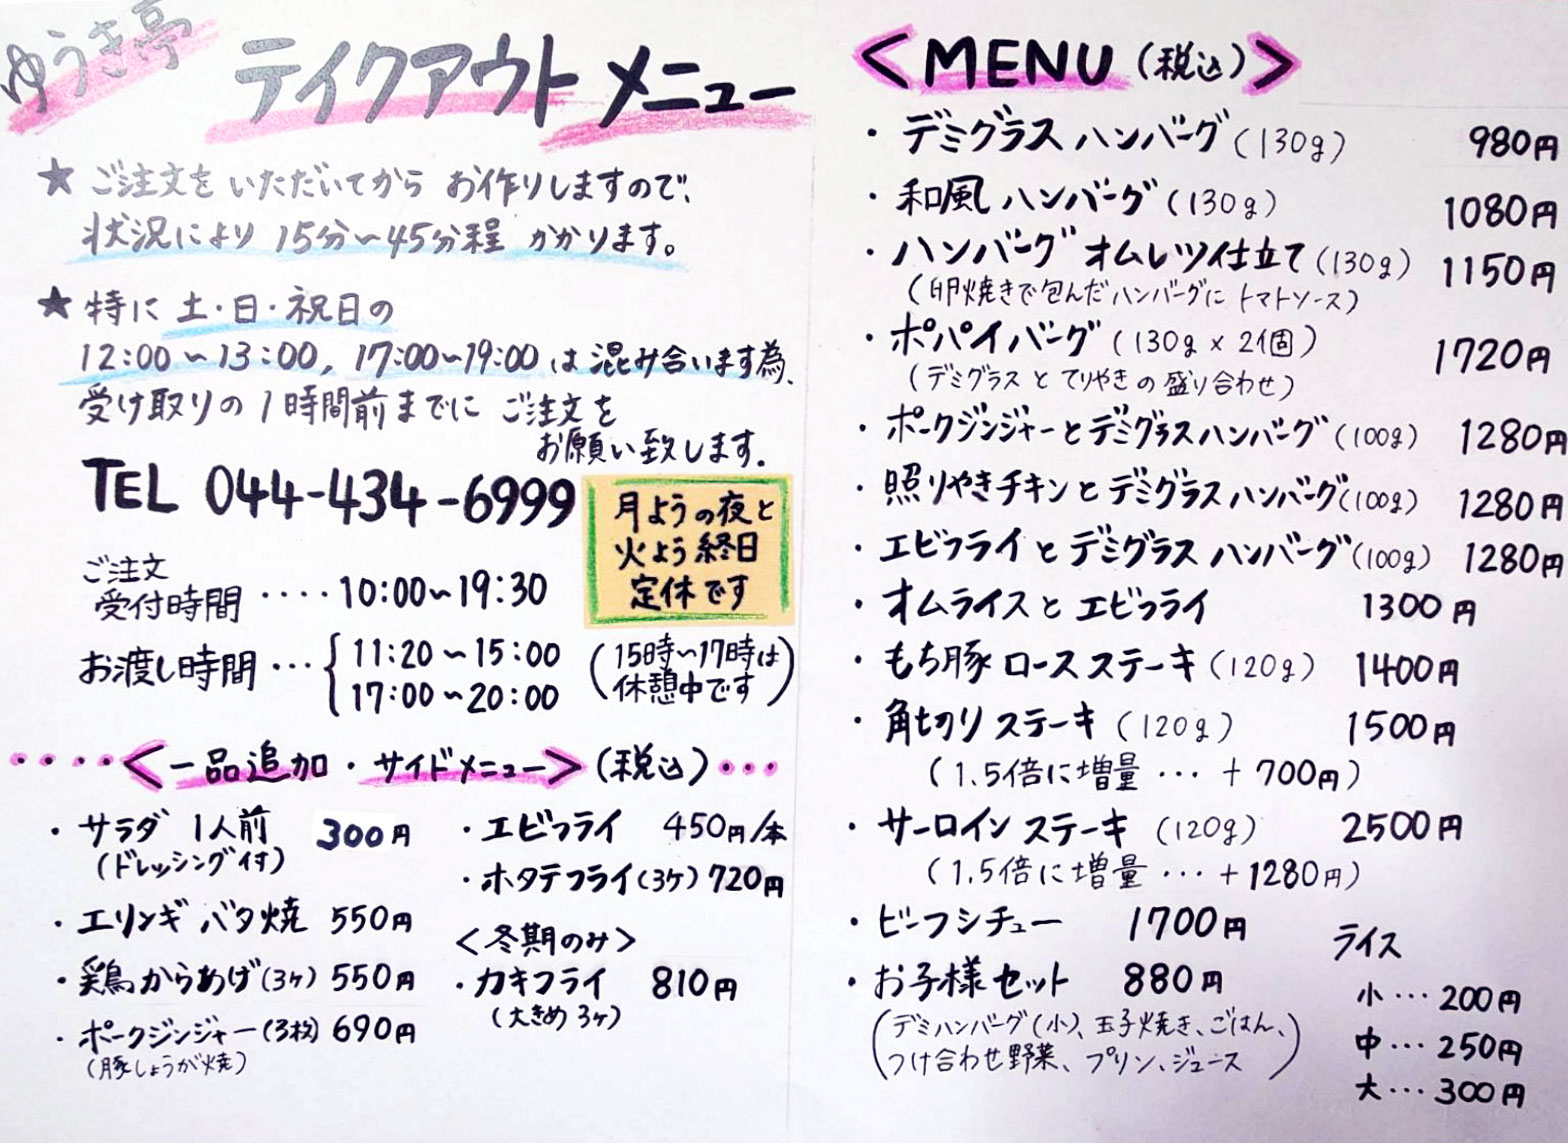 ゆうき亭
テイクアウトメニュー
★ ご注文をいただいてから お作りしますので、
状況により 15分〜45分程 かかります。
★ 特に 土・日・祝日の
12:00〜13:00, 17:00〜19:00 は 混み合います為、
受け取りの 1時間前までに ご注文を
お願い致します.
TEL 044-434-6999
月ようの夜と
火よう終日
定休です
ご注文
受付時間 ・・・・10:00〜19:30
お渡し時間 ・・・{ 11:20〜15:00
17:00〜20:00
(15時〜17時は
休憩中です)
・・・・<一品追加・サイドメニュー>(税込)・・・
・サラダ 1人前 300円
(ドレッシング付)
・エリンギ バタ焼 550円
・鶏からあげ(3ヶ) 550円
・ポークジンジャー(3枚) 690円
(豚しょうが焼)
・エビフライ 450円/本
・ホタテフライ(3ヶ) 720円
<冬期のみ>
・カキフライ 810円
(大きめ 3ヶ)
<MENU(税込)>
・デミグラスハンバーグ(130g) 980円
・和風ハンバーグ(130g) 1080円
・ハンバーグオムレツ仕立て(130g) 1150円
(卵焼きで包んだハンバーグにトマトソース)
・ポパイバーグ(130g×2個) 1720円
(デミグラスとてりやきの盛り合わせ)
・ポークジンジャーとデミグラスハンバーグ(100g) 1280円
・照りやきチキンとデミグラスハンバーグ(100g) 1280円
・エビフライとデミグラスハンバーグ(100g) 1280円
・オムライスとエビフライ 1300円
・もち豚ロースステーキ(120g) 1400円
・角切りステーキ(120g) 1500円
(1.5倍に増量・・・+700円)
・サーロインステーキ(120g) 2500円
(1.5倍に増量・・・+1280円)
・ビーフシチュー 1700円
・お子様セット 880円
(デミハンバーグ(小)、玉子焼き、ごはん、
つけ合わせ野菜、プリン、ジュース)
ライス
小・・・200円
中・・・250円
大・・・300円